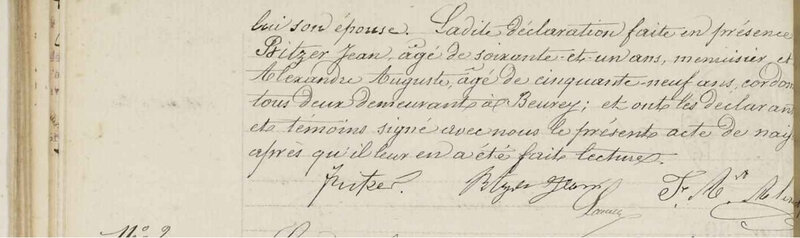 lui son épouse. Ladite déclaration faite en présence
Bitzer Jean, âgé de soixante et un ans, menuisier, et
Alexandre Auguste, âgé de cinquante-neuf ans, cordon
tous deux demeurant à Beurey; et ont les déclarant
et témoins signé avec nous le présent acte de nais
après qu'il leur en a été fait lecture.
Jean
N° 2